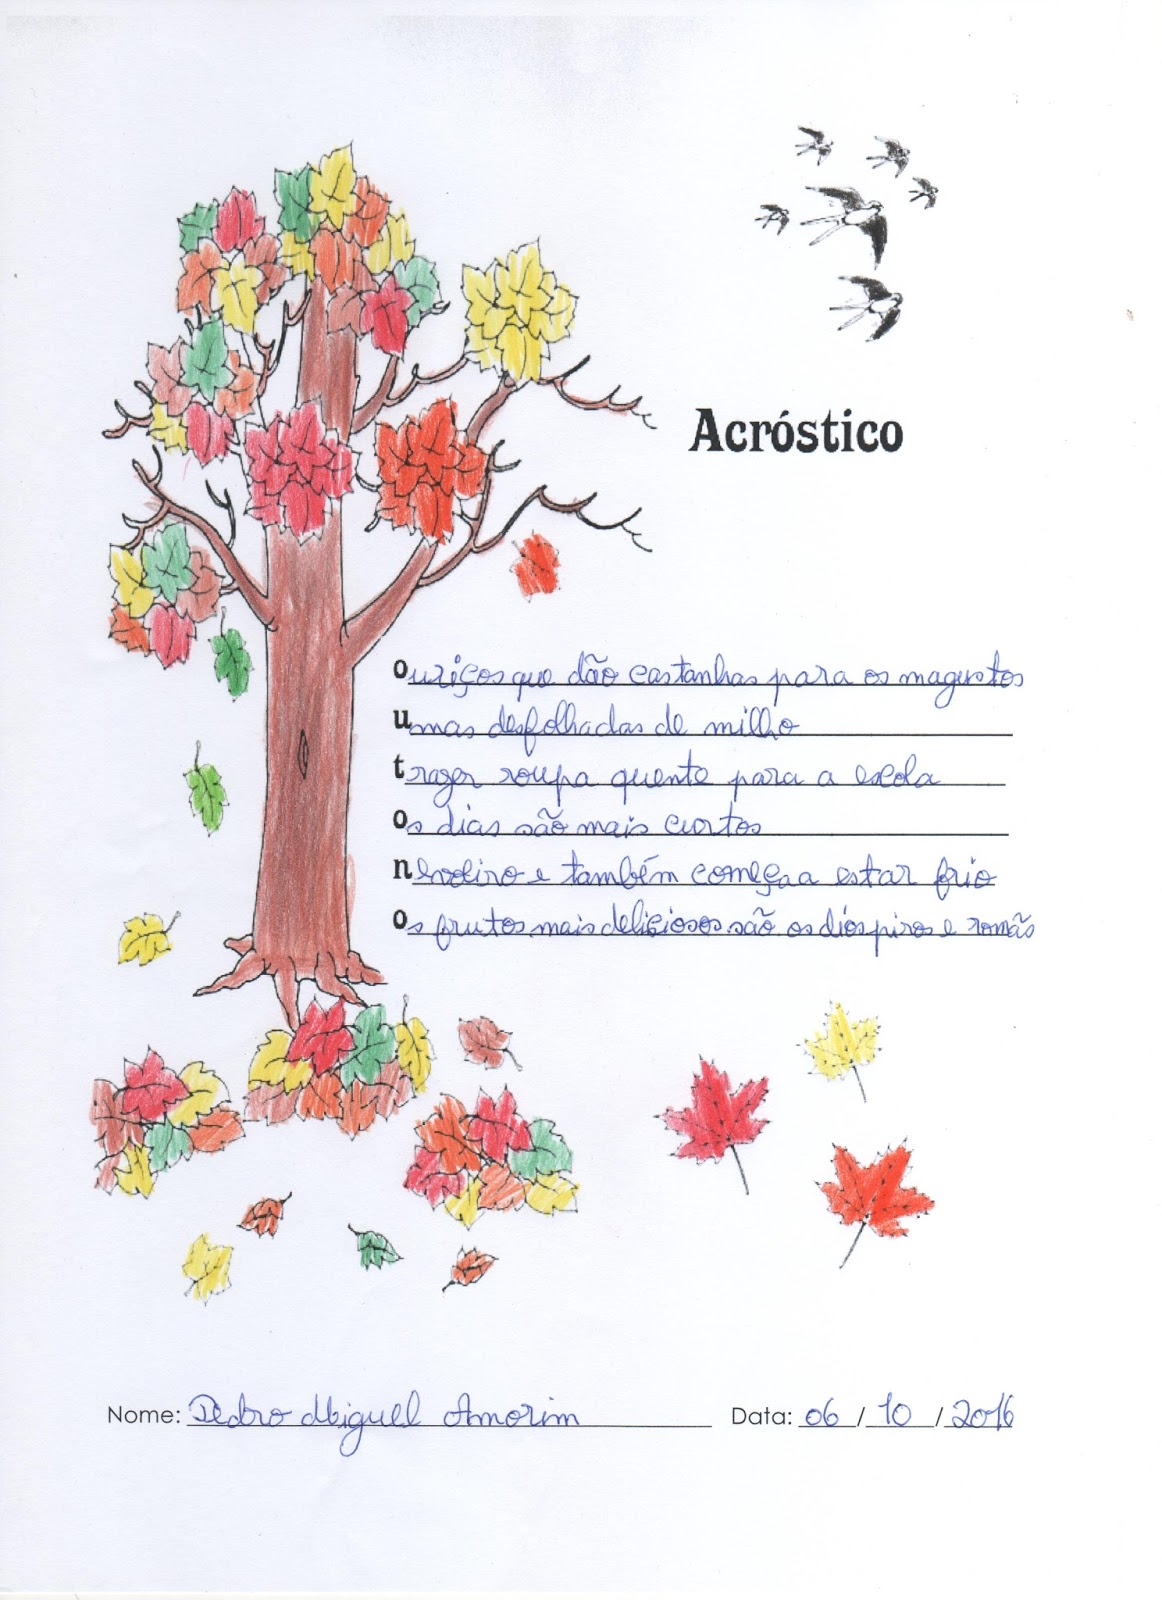 Acróstico
ouriços que dão castanhas para os magustos
umas desfolhadas de milho
trazer roupa quente para a escola
os dias são mais curtos
nevoeiro e também começa a estar frio
os frutos mais deliciosos são os dióspiros e romãs
Nome: Pedro Miguel Amorim Data: 06/10/2016